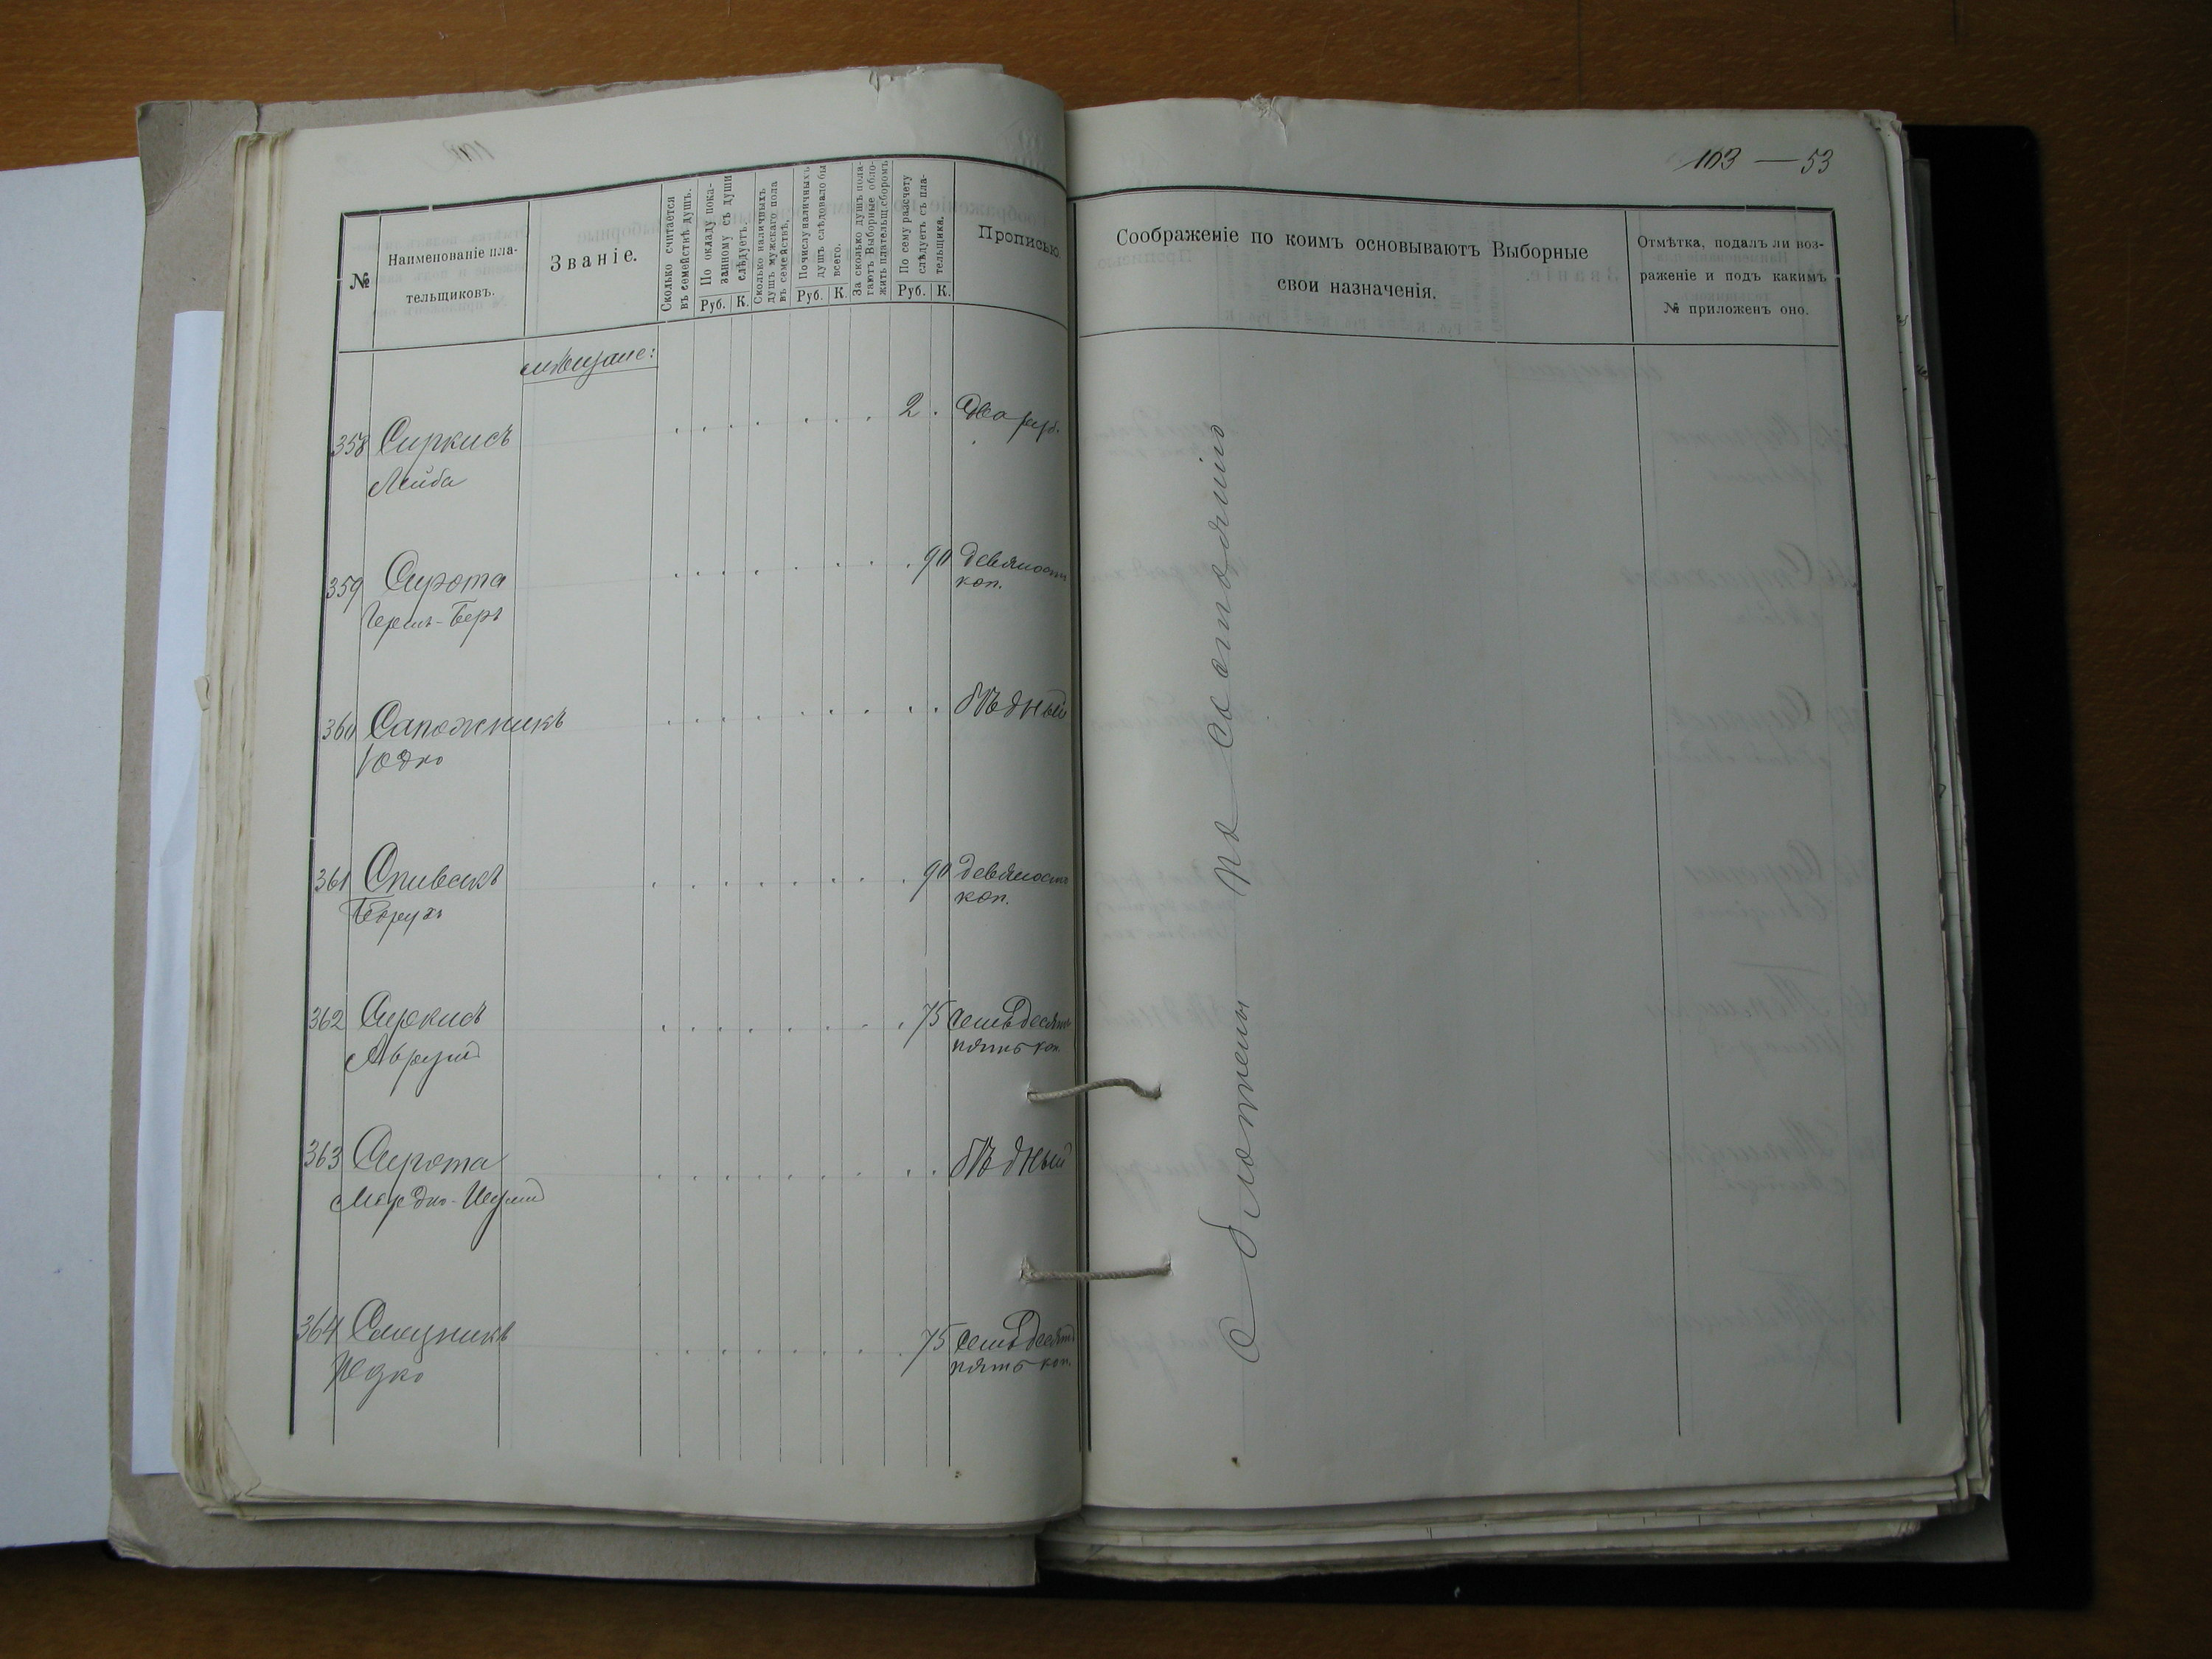 103 — 53
№
Наименованіе пла-
тельщиковъ.
Званіе.
Сколько считается
въ семействѣ душъ.
По окладу пока-
занному съ души
слѣдуетъ.
Руб. К.
Сколько наличныхъ
душъ мужскаго пола
въ семействѣ.
По числу наличныхъ
душъ слѣдовало бы
всего.
Руб. К.
За сколько душъ пола-
гаютъ Выборные обло-
жить плательщ. сборомъ
По сему разсчету
слѣдуетъ съ пла-
тельщика.
Руб. К.
Прописью.
Соображеніе по коимъ основываютъ Выборные
свои назначенія.
Отмѣтка, подалъ ли воз-
раженіе и подъ какимъ
№ приложенъ оно.
мѣщане:
358 Сиркисъ 2 . Два руб.
Лейба
359 Сирота 90 девяносто
Герш-Беръ коп.
360 Сапожникъ бѣдный
Юдко
361 Спивакъ 90 девяносто
Борухъ коп.
362 Сиркисъ 75 семьдесятъ
Аврумъ пять коп.
363 Сирота бѣдный
Мордко-
364 75 семьдесятъ
пять коп.
Обложены по состоянію